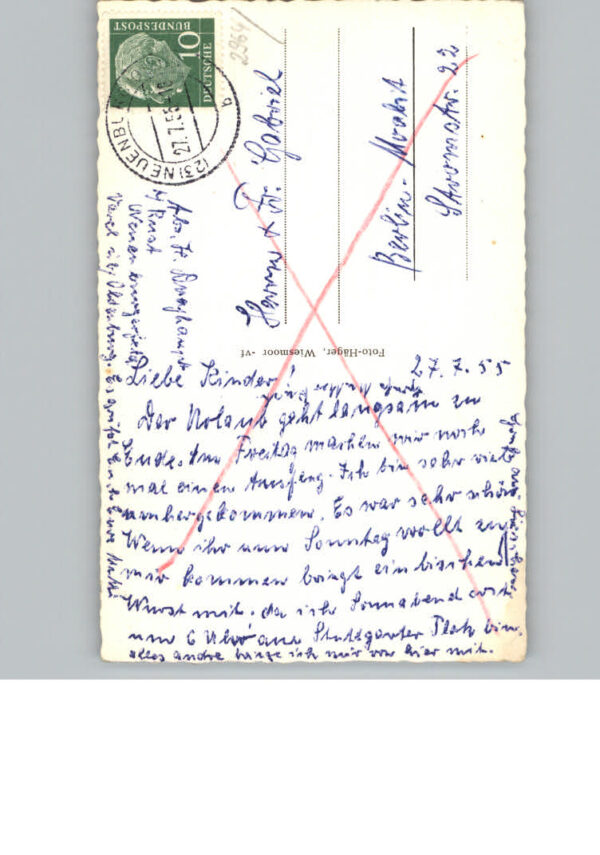 DEUTSCHE
BUNDESPOST
10
(23) NEUENB
27.7.55
2964
Herrn & Fr. Gabriel
Berlin-Moabit
Stromstr. 22
Foto-Häger, Wiesmoor -vf
27.7.55
Liebe Kinder!
Der Urlaub geht langsam zu
Ende. Am Freitag machen wir noch
mal einen Ausflug. Ich bin sehr viel
umhergekommen. Es war sehr schön
Wenn ihr nun Sonntag wollt zu
mir kommen bringt ein bischen
Wurst mit. da ich Sonnabend erst
um 6 Uhr am Stuttgarter Platz bin.
alles andre bringe ich mir von hier mit.
Abs. Fr.
Varel i/Oldenburg. Es grüßt